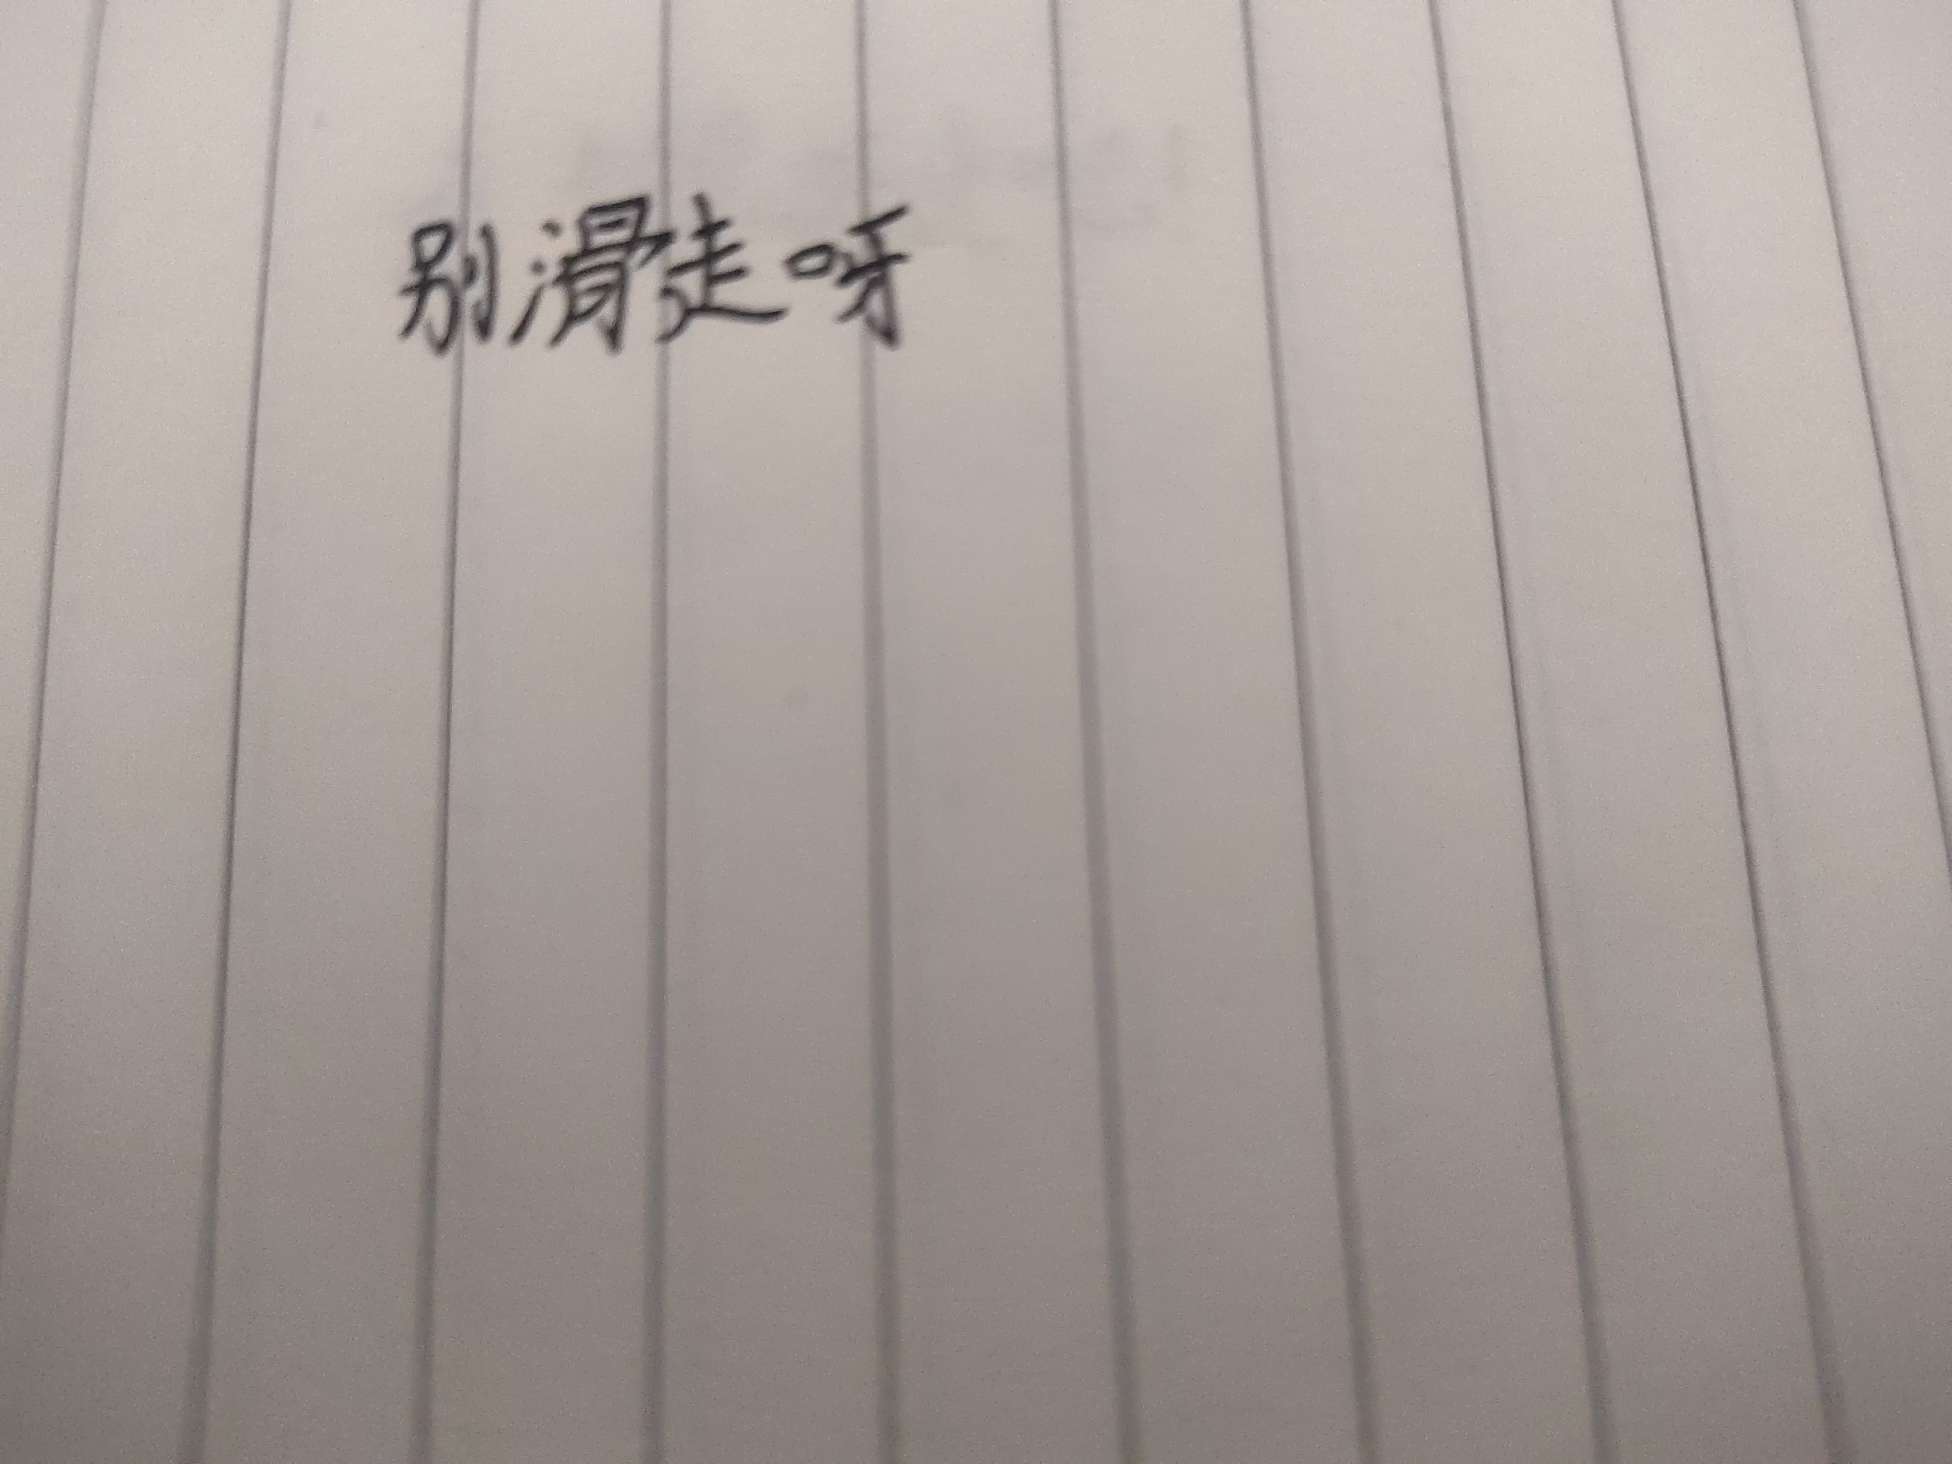 别滑走呀